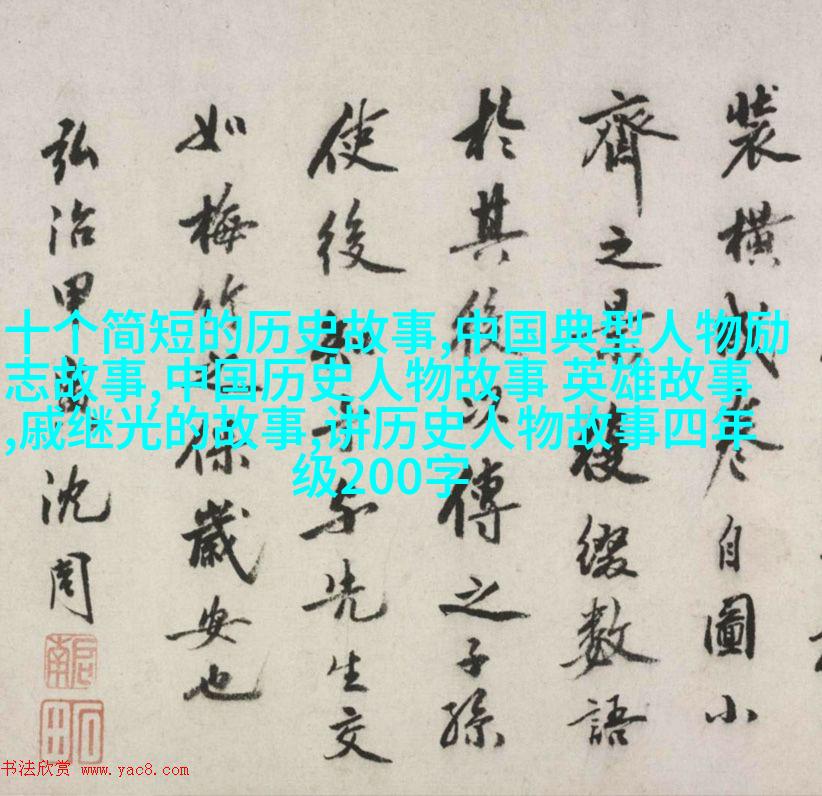 十个简短的历史故事,中国典型人物励
志故事,中国历史人物故事 英雄故事
,戚继光的故事,讲历史人物故事四年
级200字
裝橫成卷自圖小
齊之景綴數語
於其後以傳之子孫
使後知先生交
如梅竹保歲安也
弘治甲沈周
啟南
石田
书法欣赏 www.yac8.com